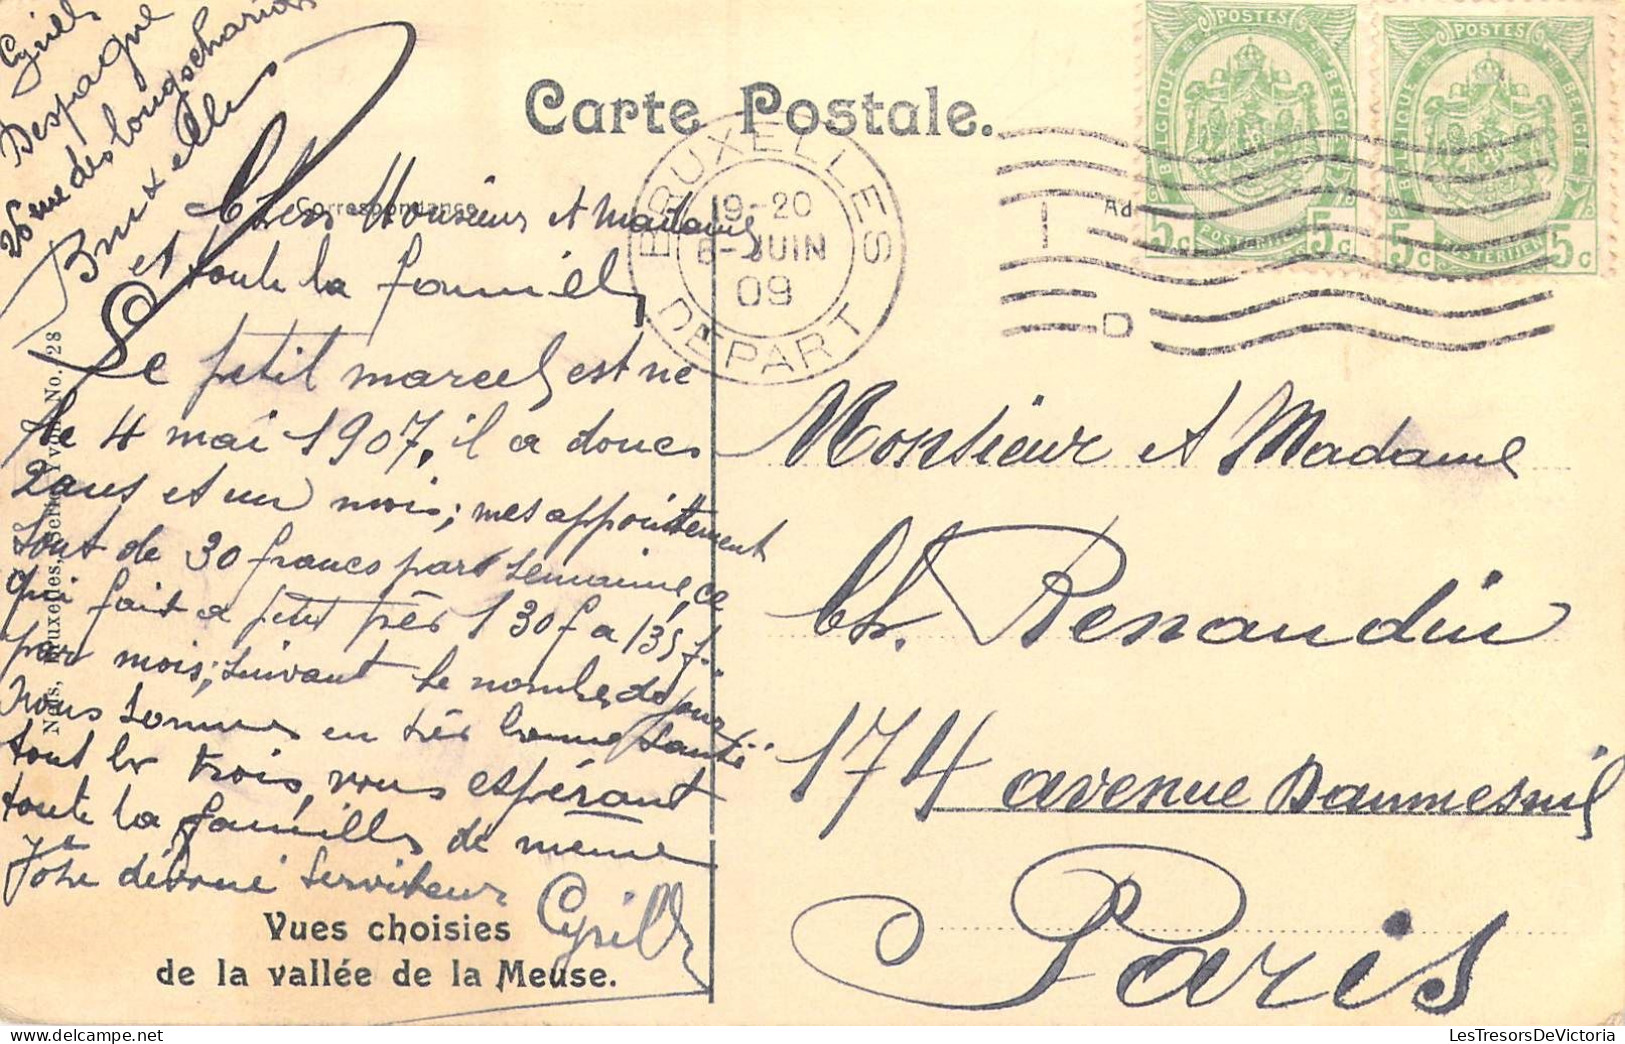 Cyrille
Despagne
26 rue des longs chariots
Bruxelles
Carte Postale.
Correspondance
BRUXELLES
19-20
6-JUIN
09
DEPART
POSTES
BELGIQUE
BELGIË
5c POSTERIJEN 5c
POSTES
BELGIQUE
BELGIE
5c POSTERIJEN 5c
Chers Monsieur et Madame
et toute la famille
Le petit marcel est né
le 4 mai 1907, il a donc
2 ans et un mois; mes appointement
sont de 30 francs par semaine, ce
qui fait a petit près 130 f a 135 f..
par mois; suivant le nombre de jour
Nous sommes en très bonne santé
tout les trois, vous espérant
toute la famille de même
Votre dévoué serviteur
Cyrille
Monsieur et Madame
Ch. Renaudin
174 avenue Daumesnil
Paris
Vues choisies
de la vallée de la Meuse.
Nels, Bruxelles, Serie Yvoir No. 28
LesTresorsDeVictoria